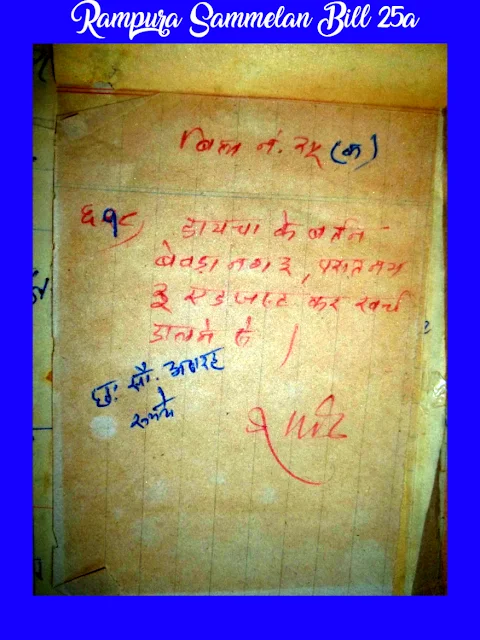 Rampura Sammelan Bill 25a
बिल नं. २५ (क)
६१८) डायचा के बर्तन -
बेवड़ा नग ३, परात नग
३ एडजस्ट कर खर्च
डालने है ।
छः सौ. अठारह
रूपये